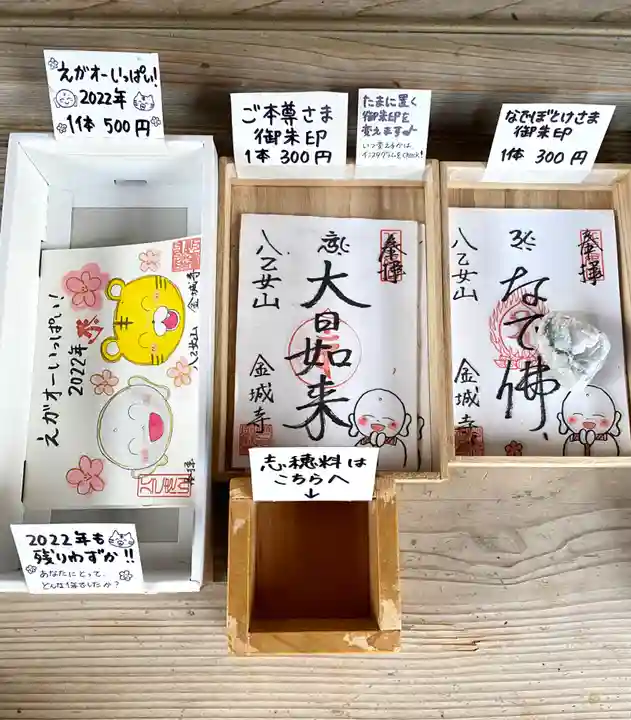 えがオーいっぱい!
2022年
1体 500円
えがオーいっぱい!
2022年
八乙女山 金城寺
奉拝
2022年も
残りわずか!!
あなたにとって、
どんな1年でしたか?
ご本尊さま
御朱印
1本 300円
たまに置く
御朱印を
変えます♪
いつ変えるかは
インスタグラムをcheck!
奉拝
大日如来
八乙女山
金城寺
なでぼとけさま
御朱印
1体 300円
奉拝
なで佛
八乙女山
金城寺
志・穂料は
こちらへ
↓